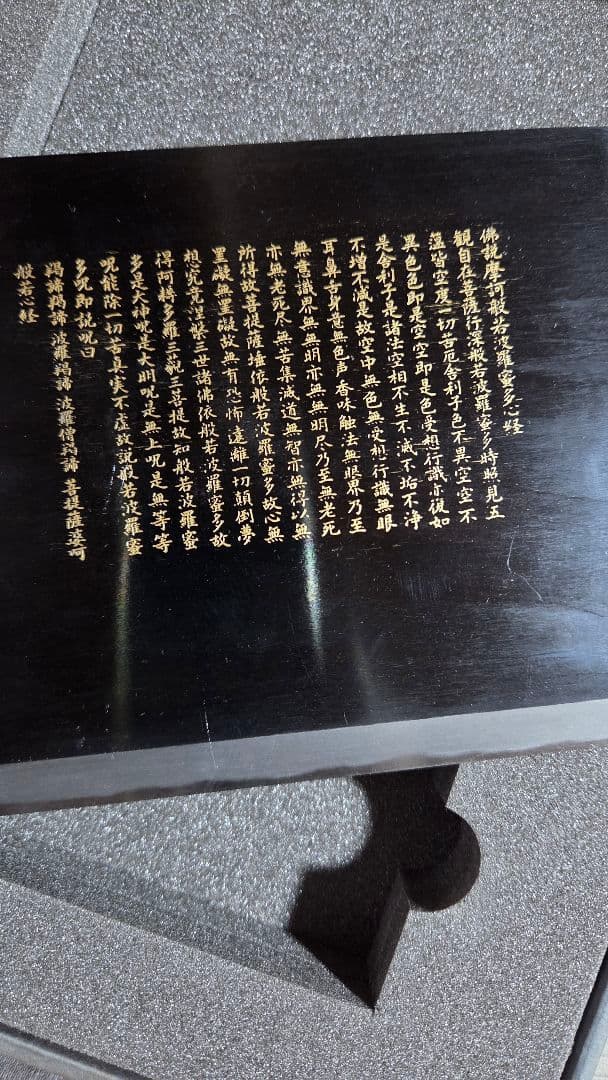 佛説摩訶般若波羅蜜多心経
観自在菩薩行深般若波羅蜜多時照見五
薀皆空度一切苦厄舎利子色不異空空不
異色色即是空空即是色受想行識亦復如
是舎利子是諸法空相不生不滅不垢不浄
不増不減是故空中無色無受想行識無眼
耳鼻舌身意無色声香味触法無眼界乃至
無意識界無無明亦無無明尽乃至無老死
亦無老死尽無苦集滅道無智亦無得以無
所得故菩提薩埵依般若波羅蜜多故心無
罣礙無罣礙故無有恐怖遠離一切顛倒夢
想究竟涅槃三世諸佛依般若波羅蜜多故
得阿耨多羅三藐三菩提故知般若波羅蜜
多是大神呪是大明呪是無上呪是無等等
呪能除一切苦真実不虚故説般若波羅蜜
多呪即説呪曰
羯諦羯諦 波羅羯諦 波羅僧羯諦 菩提薩婆訶
般若心経